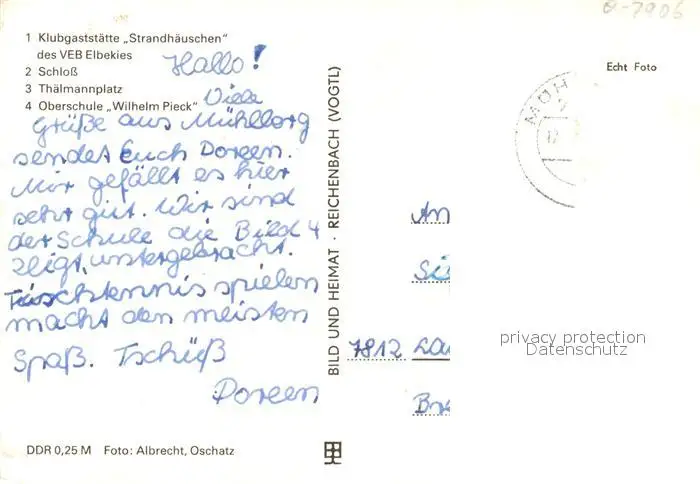 θ-7906
1 Klubgaststätte „Strandhäuschen"
des VEB Elbekies
2 Schloß
3 Thälmannplatz
4 Oberschule „Wilhelm Pieck"
Hallo!
Viele
Grüße aus Mühlberg
sendet Euch Doreen.
Mir gefällt es hier
sehr gut. Wir sind
der Schule die Bild 4
zeigt, untergebracht.
Tischtennis spielen
macht den meisten
Spaß. Tschüß
Doreen
DDR 0,25 M Foto: Albrecht, Oschatz
BILD UND HEIMAT · REICHENBACH (VOGTL)
Echt Foto
MÜH
An
7812
privacy protection
Datenschutz